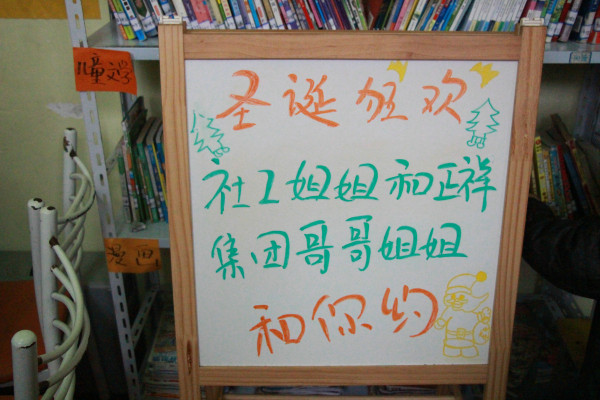 儿童文学
圣诞狂欢
社工姐姐和正祥
集团哥哥姐姐
和你约
漫画